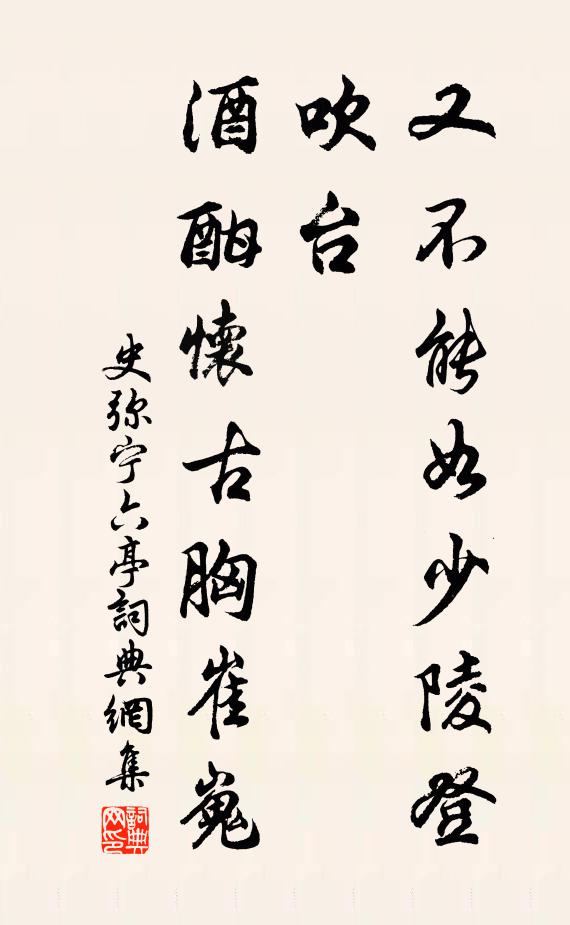 又不能如少陵登
吹台
酒酣懷古胸崔嵬
史弥宁六亭詞典網集
詞典網印